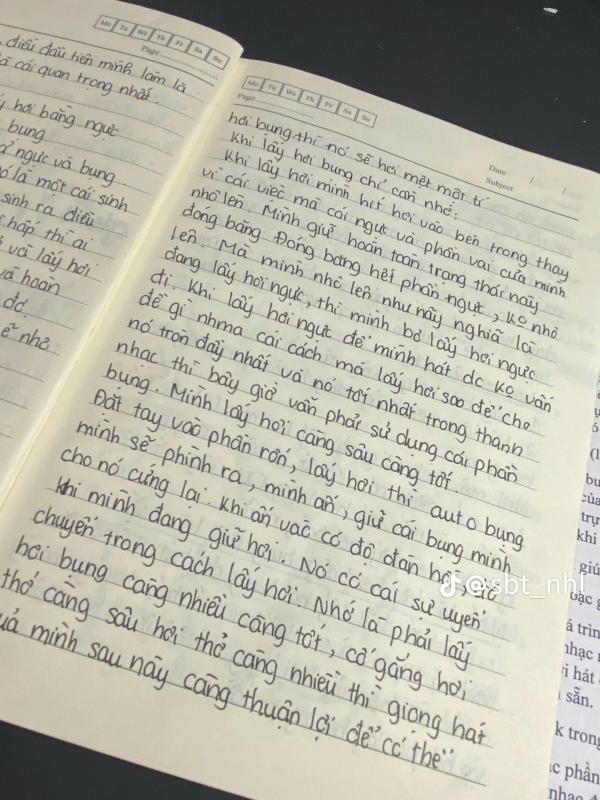 Mo Tu We Th Fr Sa Su
Page
, điều đầu tiên mình làm là
à cái quan trọng nhất.
hơi bằng ngực
bụng
ngực và bụng
ó là một cái sinh
sinh ra điều
hấp thì ai
và lấy hơi
và hoàn
dc.
ễ nhỏ
Mo Tu We Th Fr Sa Su
Page
Date / /
Subject
hơi bụng thì nó sẽ hơi mệt một tí
Khi lấy hơi bụng chỉ cần nhớ:
Khi lấy hơi mình hít hơi vào bên trong thay
vì cái việc mà cái ngực và phần vai của mình
nhô lên. Mình giữ hoàn toàn trạng thái này
đóng băng. Đóng băng hết phần ngực, ko nhô
lên. Mà mình nhô lên như này nghĩa là
đang lấy hơi ngực, thì mình bỏ lấy hơi ngực
đi. Khi lấy hơi ngực để mình hát dc ko vấn
đề gì nhma cái cách mà lấy hơi sao để cho
nó tròn đầy nhất và nó tốt nhất trong thanh
nhạc thì bây giờ vẫn phải sử dụng cái phần
bụng. Mình lấy hơi càng sâu càng tốt.
Đặt tay vào phần rốn, lấy hơi thì auto bụng
mình sẽ phình ra, mình ấn, giữ cái bụng mình
cho nó cứng lại. Khi ấn vào có độ đàn hồi,
Khi mình đang giữ hơi. Nó có cái sự uyển
chuyển trong cách lấy hơi. Nhớ là phải lấy
hơi bụng càng nhiều càng tốt, cố gắng hơi
thở càng sâu hơi thở càng nhiều thì giọng hát
uả mình sau này càng thuận lợi để có thể
@sbt_nhl
(l
bu
của
trự
khi
giú
bậc g
á trìn
nhạc n
i hát
sẵn.
k trong
ác phần
nhạc đ